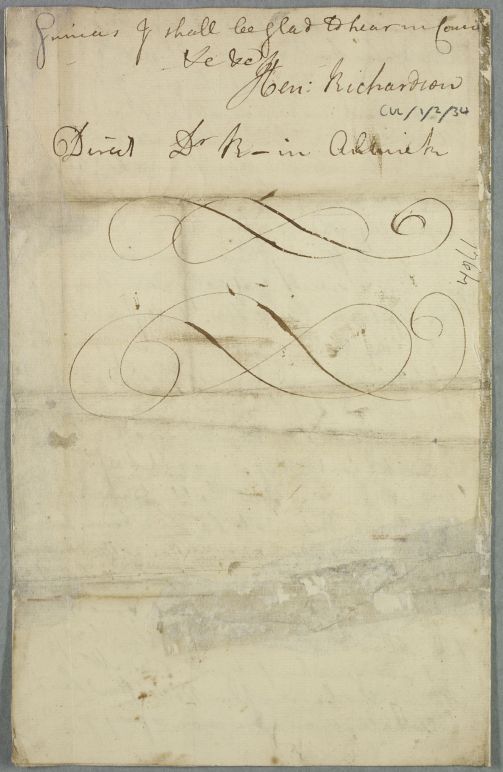 Guineas I shall be glad to hear in
&c &c
Hen: Richardson
CUL/1/2/34
Direct Dr R – in Alnwick
1764